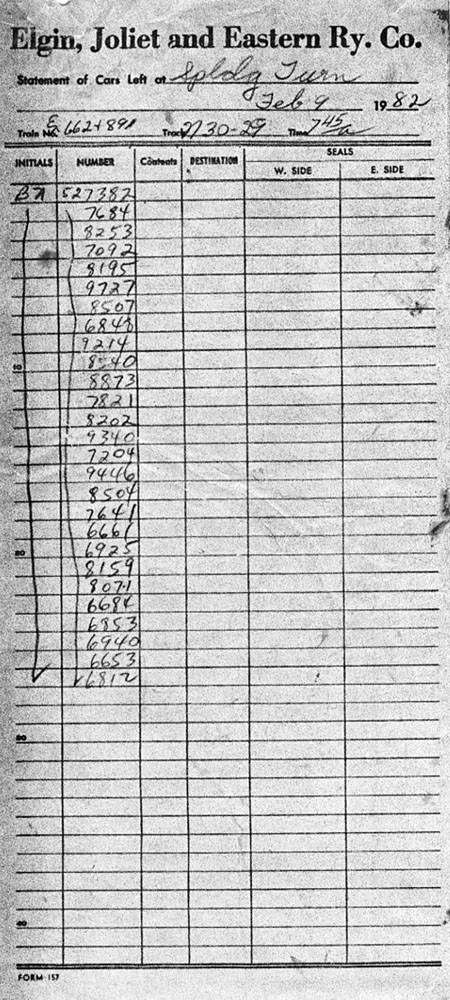 Elgin, Joliet and Eastern Ry. Co.
Statement of Cars Left at Spldg Turn
Feb 9 1982
Train No. E 662+891 Track 2730-29 Time 7 45 a
INITIALS NUMBER Contents DESTINATION SEALS
W. SIDE E. SIDE
BN 527382
7684
8253
7092
8195
9727
8507
6848
9214
10 8540
8873
7821
8202
9340
7204
9446
8504
7641
6661
20 6925
8159
8071
6684
6853
6940
6653
6812
30
40
FORM 157